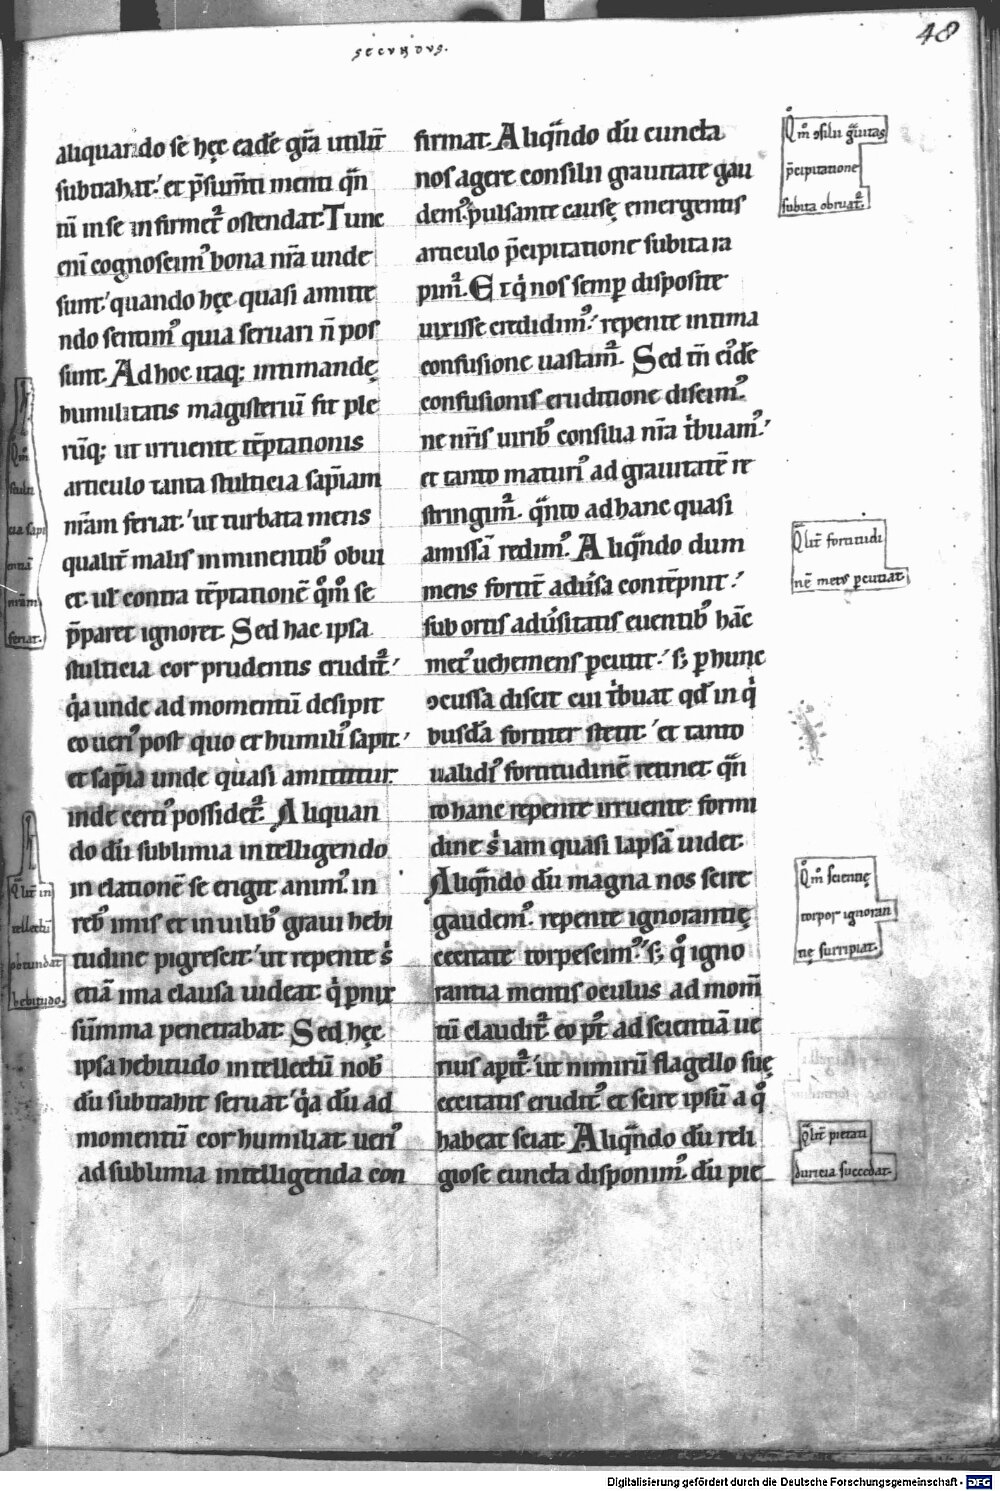 SECVNDVS.
48
aliquando se hęc eadē gr̄a utilit̄
subtrahat.' et p̄sum̄ti menti q̄n
tū in se infirmet᷑ ostendat. Tunc
eni cognoscim᷒ bona nr̄a unde
sunt.' quando hęc quasi amitte
ndo sentim᷒ quia seruari n̄ pos
sunt. Ad hoc itaq; intimandę
humilitatis magisteriū fit ple
rūq; ut irruente tēptationis
articulo tanta stulticia sap̄iam
nr̄am feriat.' ut turbata mens
qualit̄ malis inminentib᷒ obui
et. ul̄ contra tēptationē q̊m̊ se
p̄paret ignoret. Sed hac ipsa
stulticia cor prudentis erudit᷑.'
q̇a unde ad momentū desipit
eo ueri᷒ post quo et humili᷒ sapit.'
et sap̄ia unde quasi amittitur.
inde certi᷒ possidet᷑. Aliquan
do dū sublimia intelligendo
in elationē se erigit anim᷒. in
reb᷒ imis et in uilib᷒ graui hebi
tudine pigrescit.' ut repente s᷒
etiā ima clausa uideat. q̇ pnix
sūmma penetrabat. Sed hęc
ipsa hebitudo intellectū nob̄
dū subtrahit seruat.' q̇a dū ad
momentū cor humiliat. ueri᷒
ad sublimia intelligenda con
firmat. Aliqn̄do dū cuncta
nos agere consilii grauitate gau
dem᷒. pulsante causę emergentis
articulo p̄cipitatione subita ra
pim᷑. Et q̇ nos semp̱ disposite
uixisse credidim᷒.' repente intima
confusione uastam᷑. Sed tn̄ ei᷒dē
confusionis eruditione discim᷒.
ne nr̄is uirib᷒ consilia nr̄a t̊buam᷒.'
et tanto maturi᷒ ad grauitatē re
stringim᷑. q̄nto ad hanc quasi
amissā redim᷒. Aliqn̄do dum
mens fortit̄ adu̓sa contēpnit.'
sub ortis adu̓sitatis euentib᷒ hāc
met᷒ uehemens p̱cutit.' s; p̱ hunc
ↄcussa discit cui t̊buat qd̄ in q̇
busdā fortiter stetit.' et tanto
ualidi᷒ fortitudinē retinet. q̄n
to hanc repente irruente formi
dine s᷒ iam quasi lapsā uidet.
Aliqn̄do dū magna nos scire
gaudem᷒. repente ignorantię
cecitate torpescim᷒.' s; q̊ igno
rantia mentis oculus ad mom̄
tū claudit᷑. eo p᷒t ad scientiā ue
rius ap̱it᷑.' ut nimirū flagello suę
cecitatis erudit᷒. et scire ipsū a q̊
habeat sciat. Aliqn̄do dū reli
giose cuncta disponim᷒. dū pie
Qm̊
stulti
cia sapi
entiā
nr̄am
feriat.
Qlit̄ in
tellectū
obtundat
hebitudo.
Qm̊ ↄsilii g̊uitas
p̄cipitatione
subita obruat᷑.
Qlit̄ fortitudi
nē met᷒ p̱cutiat.
Qm̊ scientię
torpor ignoran
tię surripiat.
Qlit̄ pietati
duricia succedat.
Digitalisierung gefördert durch die Deutsche Forschungsgemeinschaft - DFG